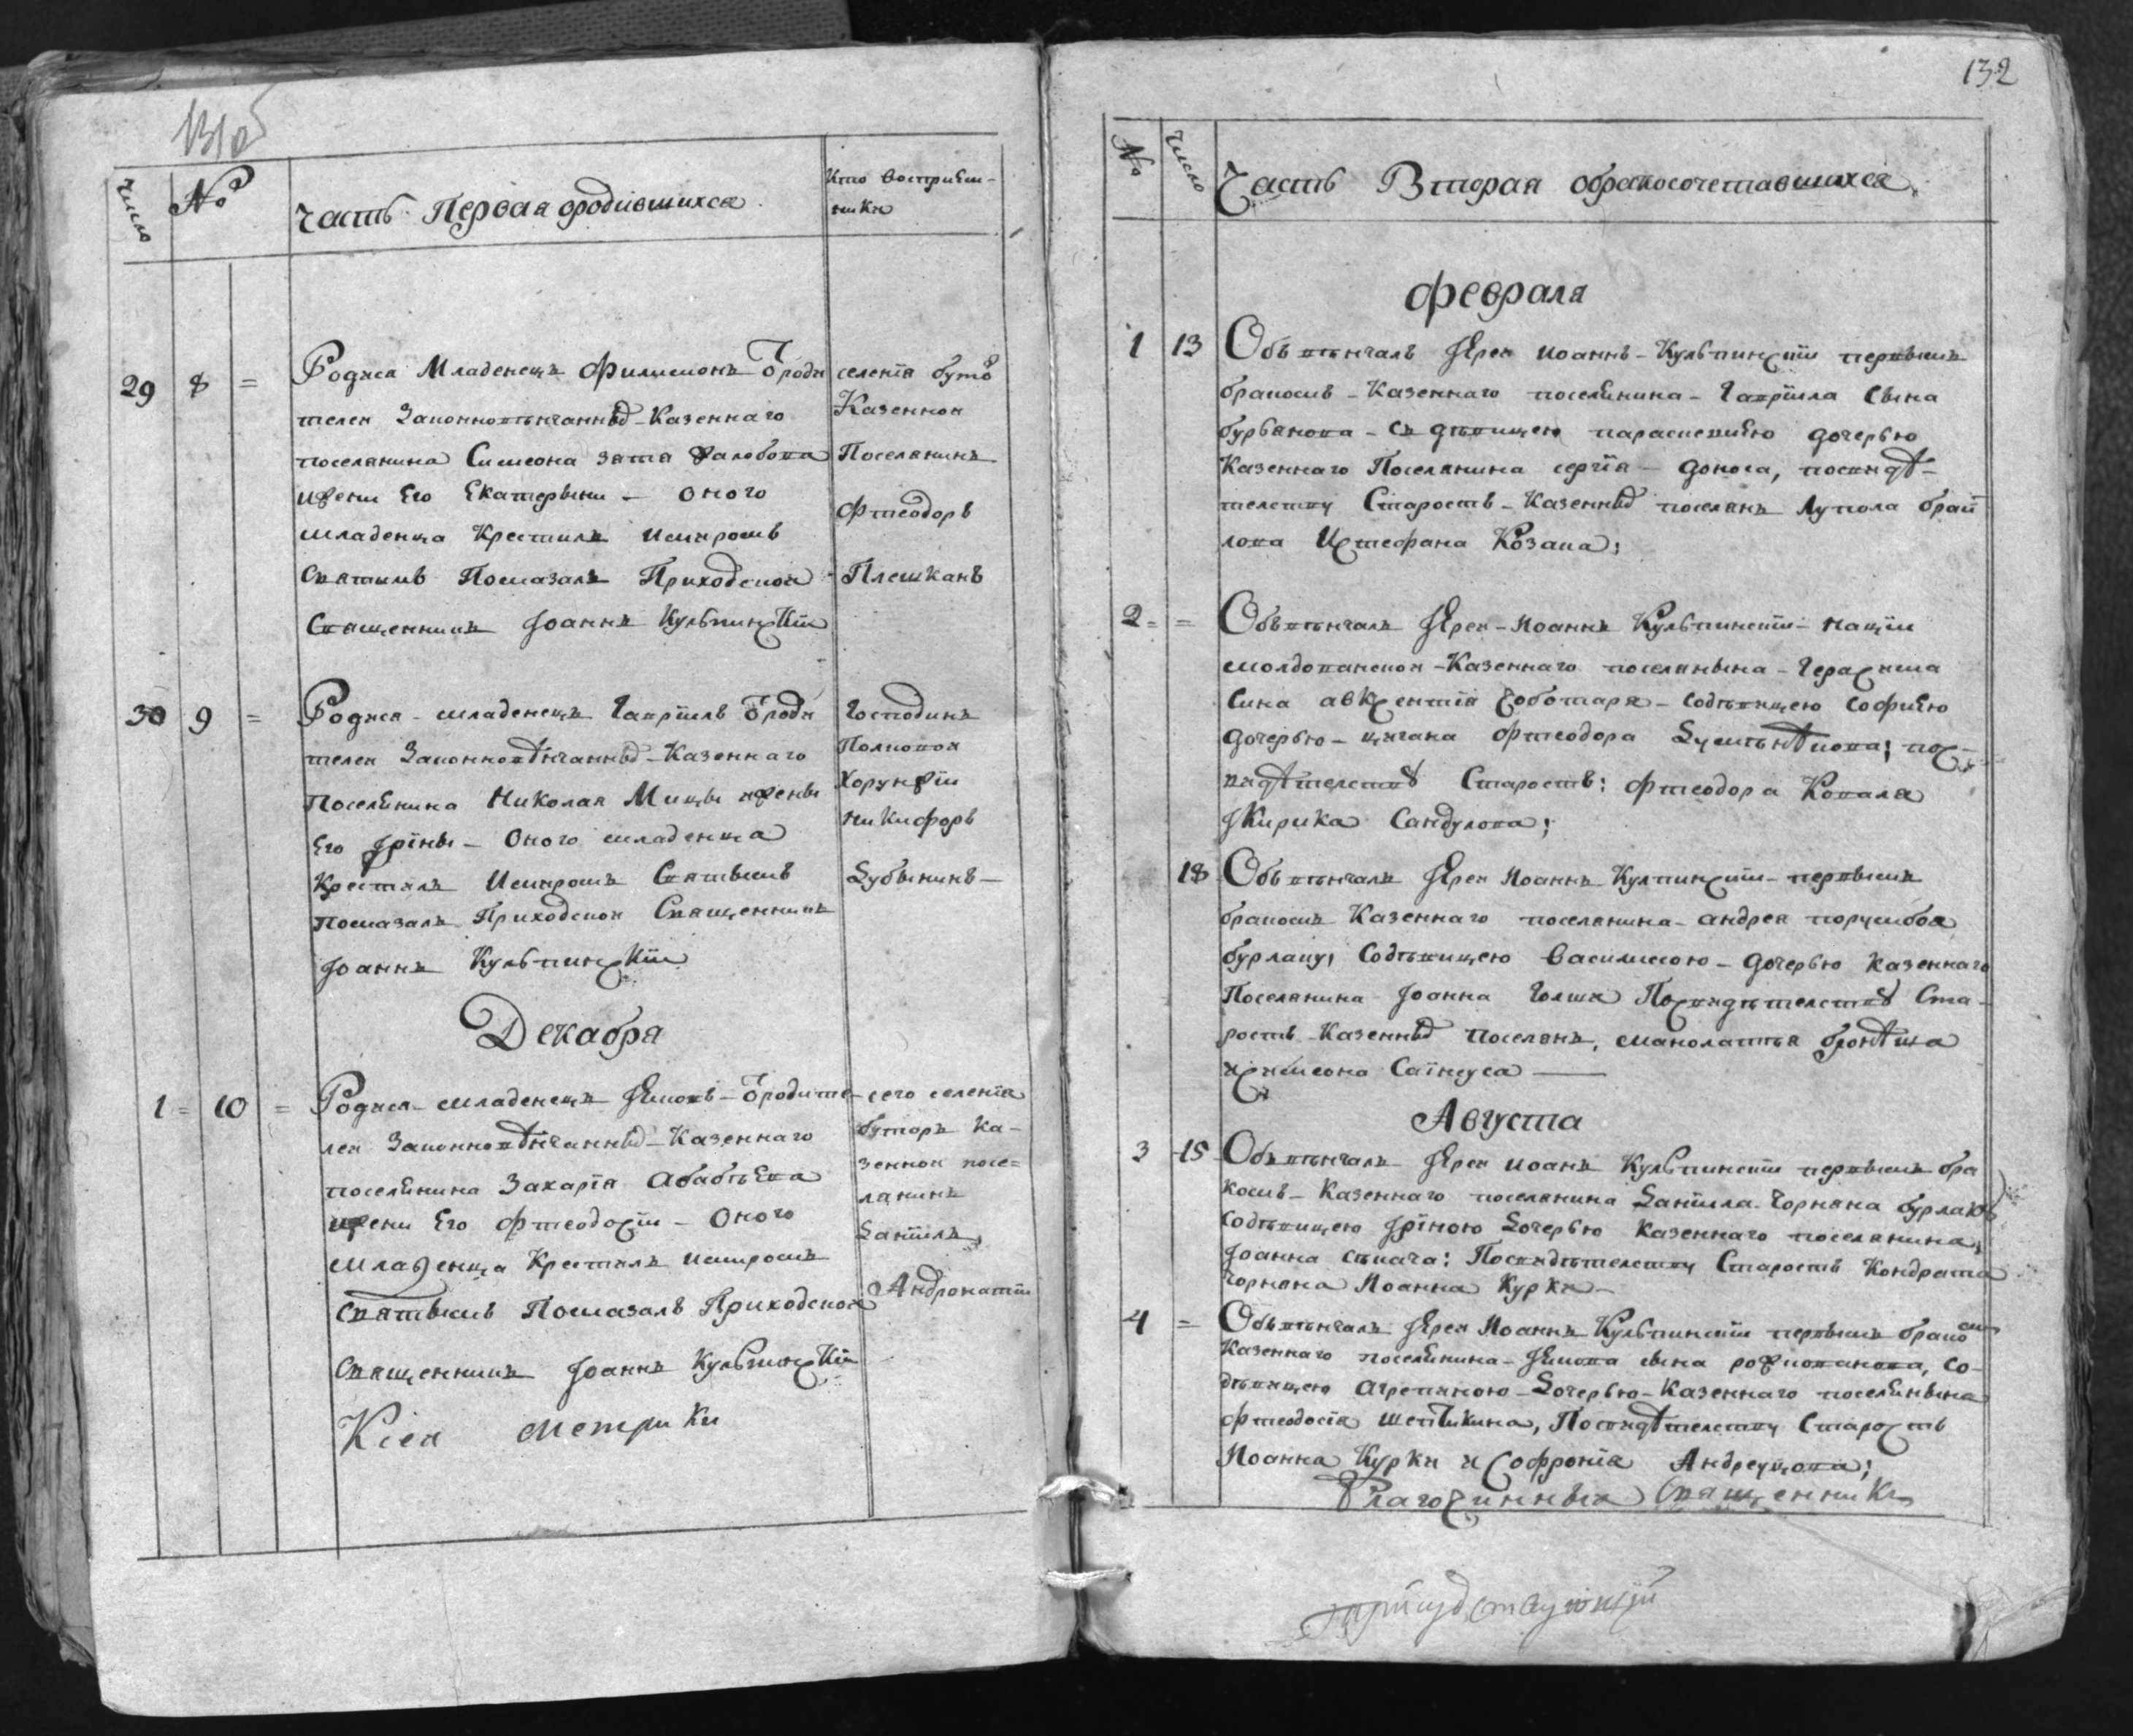 131 об
Число
№
Часть Первая ородившихся
Кто восприем-
ники
29 8 = Родися Младенецъ Филимонъ Ѿроди
телей Законновѣнчанныхъ Казеннаго
поселянина Симеона зятя
ижени Его Екатерини - Оного
младенца Крестилъ Имиромъ
Святимъ Помазалъ Приходской
Священникъ Іоаннъ Кульпинскїй
селенїя буторъ
Казенной
Поселянинъ
Фтеодоръ
Плешканъ
30 9 = Родися - младенецъ Гаврїилъ Ѿроди
телей Законновѣнчанныхъ - Казеннаго
Поселянина Николая Мицы ижены
Его Ірїны - Оного младенца
Крестилъ Имиромъ Святымъ
Помазалъ Приходской Священникъ
Іоаннъ Кульпинскїй
Господинъ
Полковой
Хорунжїй
Никифоръ
Зубынинъ -
Декабря
1 = 10 = Родися - младенецъ Іяковъ - Ѿродите-
лей Законновѣнчанныхъ - Казеннаго
поселянина Захарїя Абабѣева
ижени Его Фтеодосїи - Оного
Младенца Крестилъ имиромъ
Святымъ Помазалъ Приходской
Священникъ Іоаннъ Кульпинскїй
сего селенїя
буторъ Ка-
зенной посе=
лянинъ
Данїилъ
Андронатїй
Кїея метрики
132
№
Число
Часть Вторая обракосочетавшихся
Февраля
1 13 Обвѣнчалъ Іерей иоаннъ - Кульпинскїй первымъ
бракомъ - Казеннаго поселянина - Гаврїила Сына
бурьянова - съ дѣвицею параскевиею дочерью
Казеннаго Поселянина сергїя - доноса, посвидѣ-
телству Старостъ - Казенныхъ поселянъ Лупола браи
лова Истефана Козака;
2 = = Обвѣнчалъ Іерей - Иоаннъ Кульпинскїй - нацїи
молдованской - Казеннаго поселянына - Герасима
Сина авксентїя Чоботаря - содѣвицею Софиею
дочерью - цигана Фтеодора посˉ
видѣтелству Старостъ: Фтеодора Коваля
Ікирика Сандулова;
18 Обвѣнчалъ Іерей Иоаннъ Кулпинскїй - первымъ
бракомъ Казеннаго поселянина - андрея порумбоя
бурлаку, Содѣвицею Василисою - дочерью Казеннаго
Поселянина Іоанна Голши Посвидѣтелству Ста-
ростъ - Казенныхъ Поселянъ, манолатїя
исимеона Саїнсуса
Августа
3 15 Обвѣнчалъ Іерей иоанъ Кульпинскїй первымъ бра
комъ - Казеннаго поселянина Данїила Чорняна бурлаку
содѣвицею Ірїною Дочерью Казеннаго поселянина
Іоанна спинача: Посвидѣтелству Старостъ Кондрата
Чорняна Иоанна Курки -
4 = Обвѣнчалъ Іерей Иоаннъ Кульпинскїй первымъ бракомъ
Казеннаго поселянина - Іякова сына рожкованова, со-
дѣвицею агрепиною - Дочерью - Казеннаго поселянина
Фтеодосїя Шептикина, Посвидѣтелству Старостъ
Иоанна Курки и Софронїя Андреуцова;
Благочинный Священникъ